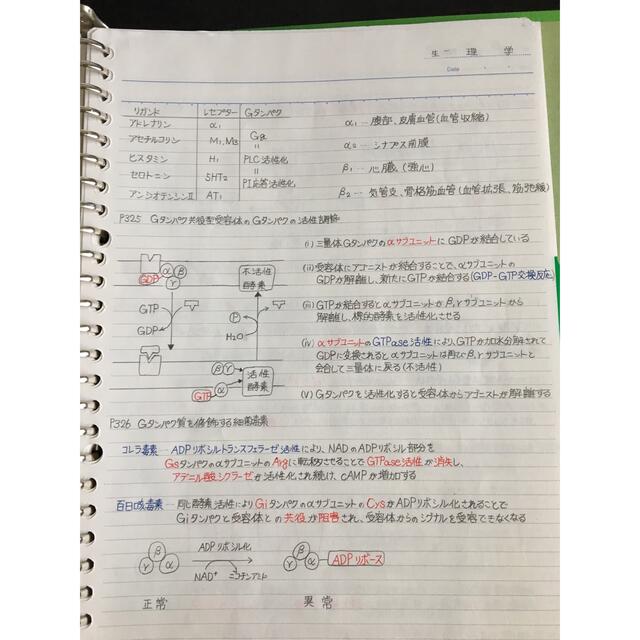 生理学
Date
リガンド レセプター Gタンパク
アドレナリン α₁
アセチルコリン M₁, M₃ Gq
ヒスタミン H₁ PLC活性化
セロトニン 5HT₂ PI応答活性化
アンジオテンシンⅡ AT₁
α₁ … 腹部、皮膚血管(血管収縮)
α₂ … シナプス前膜
β₁ … 心臓(強心)
β₂ … 気管支、骨格筋血管(血管拡張、筋弛緩)
P325 Gタンパク共役型受容体のGタンパクの活性調節
(i) 三量体GタンパクのαサブユニットにGDPが結合している
(ii) 受容体にアゴニストが結合することで、αサブユニットの
GDPが解離し、新たにGTPが結合する(GDP-GTP交換反応)
(iii) GTPが結合するとαサブユニットがβ,γサブユニットから
解離し、標的酵素を活性化させる
(iv) αサブユニットのGTPase活性により、GTPが加水分解されて
GDPに変換されるとαサブユニットは再びβ,γサブユニットと
会合して三量体に戻る(不活性)
(V) Gタンパクを活性化すると受容体からアゴニストが解離する
GDP α β γ
不活性
酵素
GTP
GDP
P
H₂O
GTP α
β γ
活性
酵素
P326 Gタンパク質を修飾する細菌毒素
コレラ毒素 ADPリボシルトランスフェラーゼ活性により、NADのADPリボシル部分を
GsタンパクのαサブユニットのArgに転移させることでGTPase活性が消失し、
アデニル酸シクラーゼが活性化され続け、cAMPが増加する
百日咳毒素 同じ酵素活性によりGiタンパクのαサブユニットのCysがADPリボシル化されることで
Giタンパクと受容体との共役が阻害され、受容体からのシグナルを受容できなくなる
β γ α
ADPリボシル化
NAD⁺ ニコチンアミド
β γ α ADPリボース
正常 異常